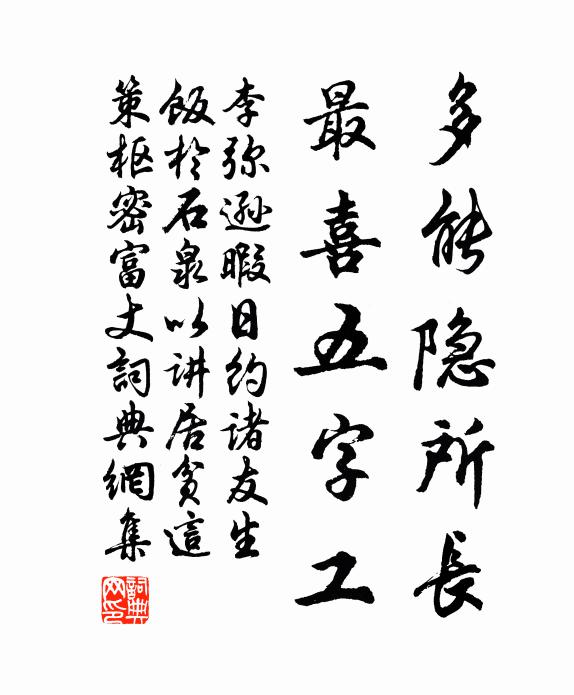 多能隐所長
最喜五字工
李弥遜暇日约諸友生
饭於石泉以讲居贫這
策枢密富丈詞典網集
詞典
网印